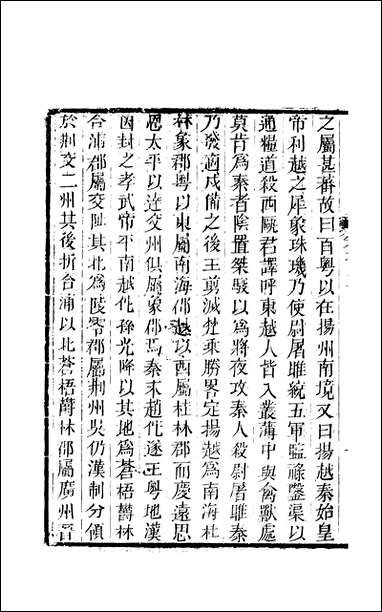 之屬甚蕃故曰百粤以在揚州南境又曰揚越秦始皇
帝利越之犀象珠璣乃使尉屠雎統五軍監祿鑿渠以
通糧道殺西甌君譯呼東越人皆入叢薄中與禽獸處
莫肯爲秦者陰置桀駿以爲將夜攻秦人殺尉屠雎秦
乃發適戍備之後王剪滅楚乘勝畧定揚越爲南海桂
林象郡粤以東屬南海郡以西屬桂林郡而慶遠思
恩太平以達交州俱屬象郡焉秦末趙佗遂王粤地漢
因封之孝武帝平南越佗孫光降以其地爲蒼梧欝林
合浦郡屬交阯其北爲陵零郡屬荆州吳仍漢制分領
於荆交二州其後折合浦以北蒼梧欝林郡屬廣州晉